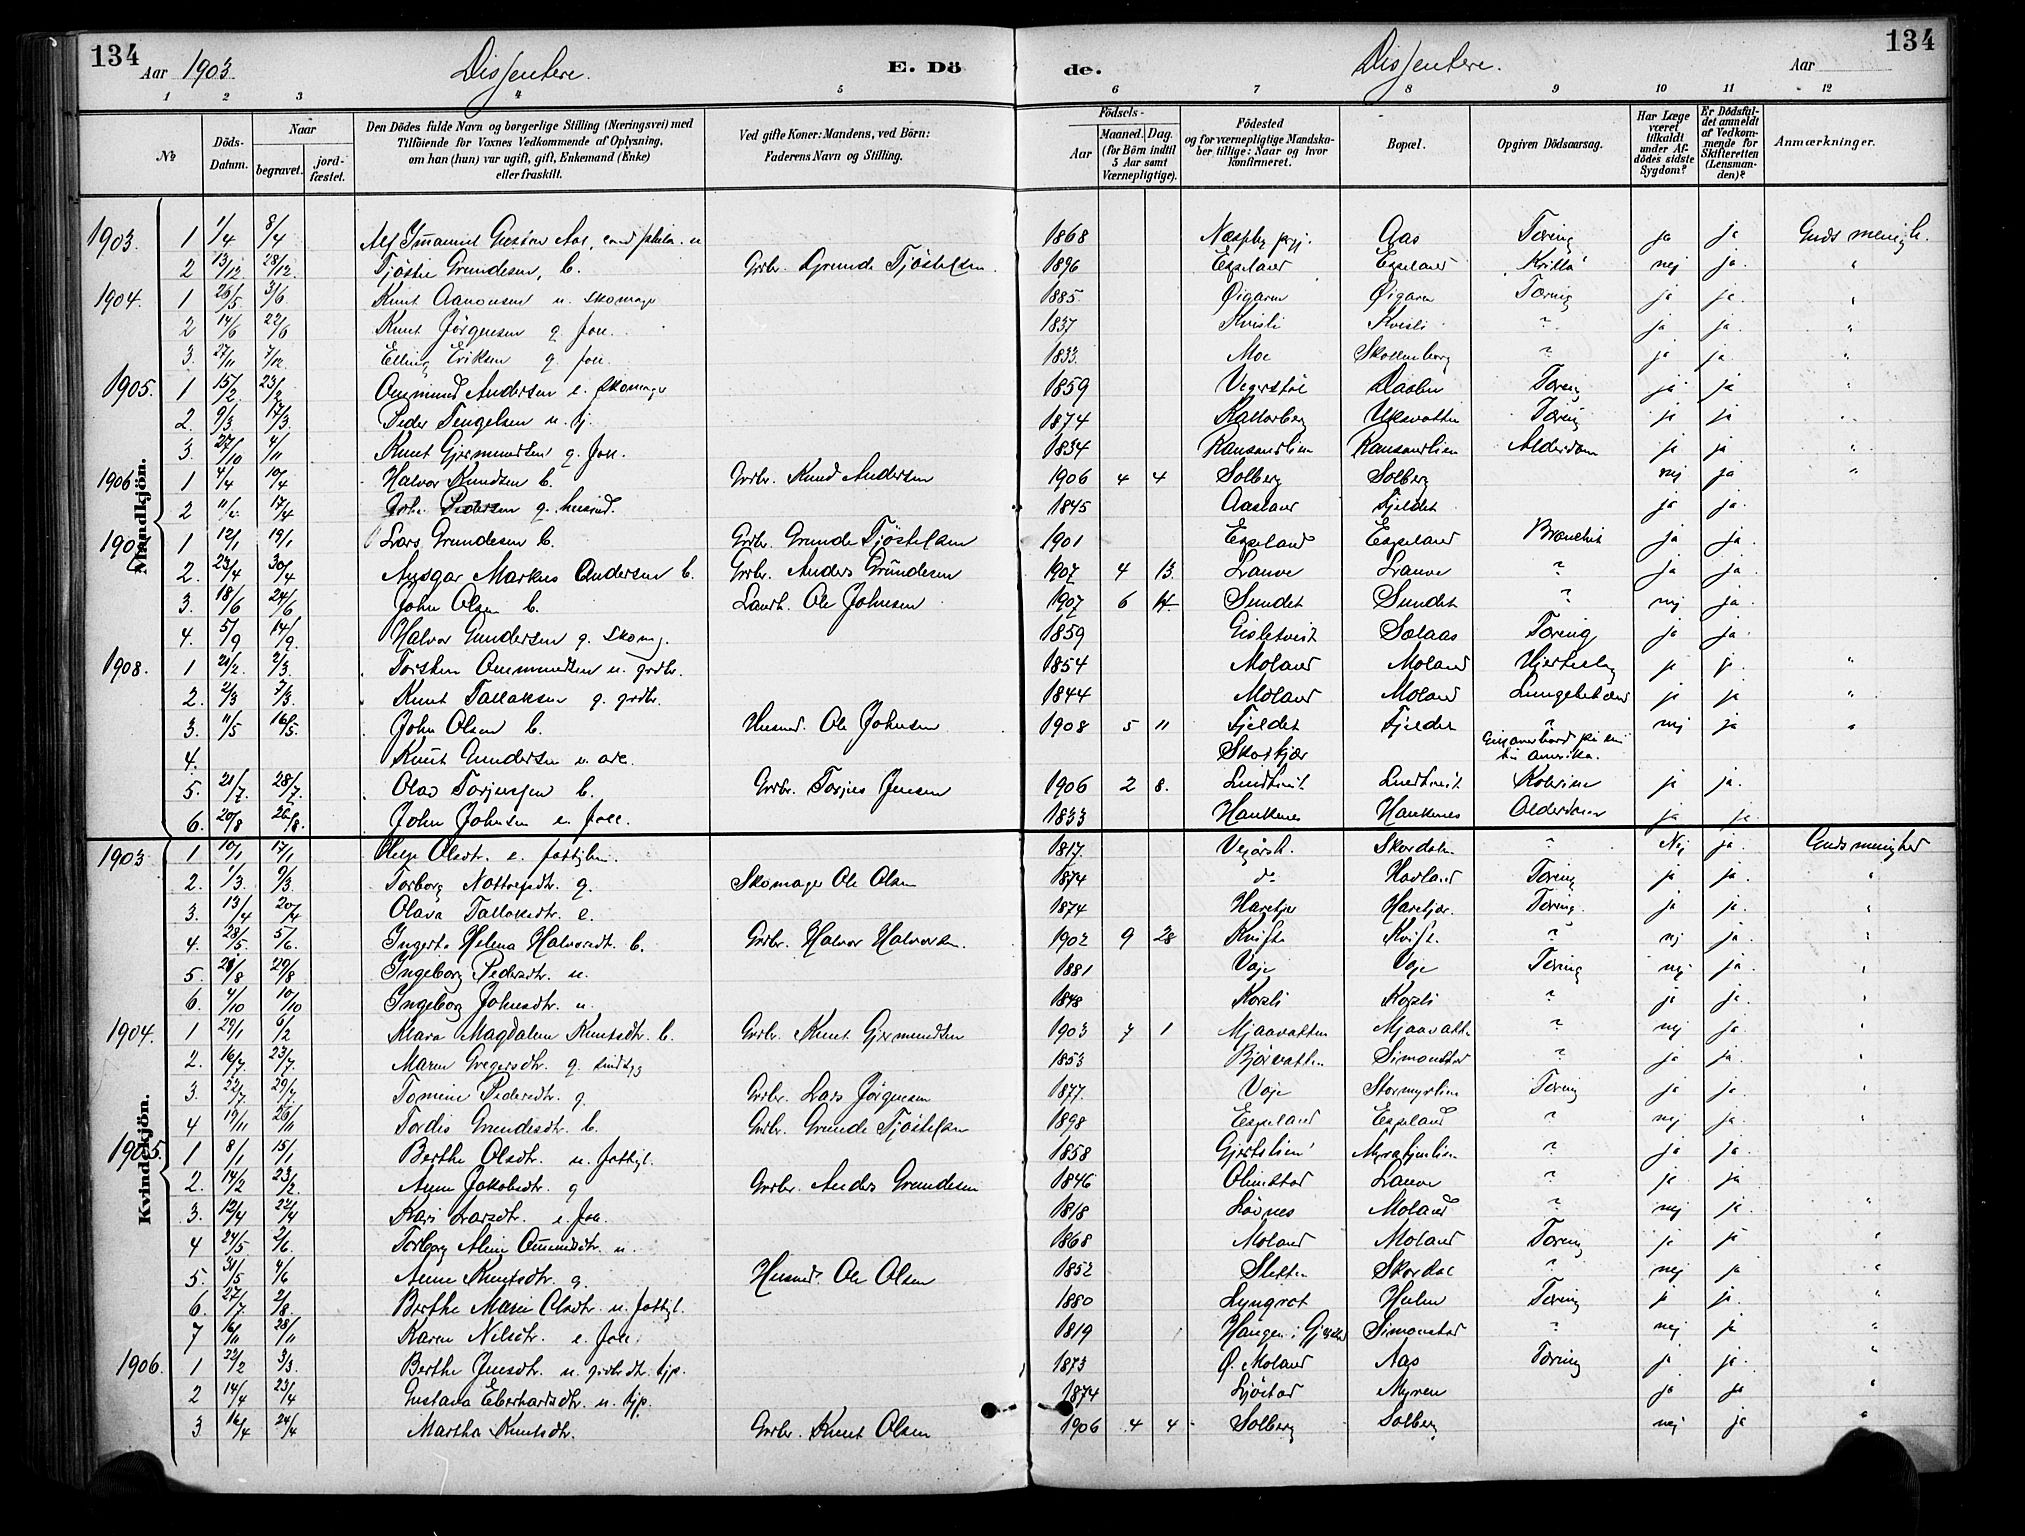 134
Aar 1903.
Dissentere.
E. Dö
de.
Dissentere.
Aar
134
1 2 3 4 5 6 7 8 9 10 11 12
No
Döds-Datum.
Naar
begravet.
jord-fæstet.
Den Dödes fulde Navn og borgerlige Stilling (Næringsvei) med
Tilföiende for Voxnes Vedkommende af Oplysning,
om han (hun) var ugift, gift, Enkemand (Enke)
eller fraskilt.
Ved gifte Koner: Mandens, ved Börn:
Faderens Navn og Stilling.
Födsels-
Aar
Maaned. Dag.
(for Börn indtil
5 Aar samt
Værnepligtige).
Födested
og for værnepligtige Mandska-
ber tillige: Naar og hvor
konfirmeret.
Bopæl.
Opgiven Dödsaarsag.
Har Læge
været
tilkaldt
under Af-
dödes sidste
Sygdom?
Er Dödsfal-
det anmeldt
af Vedkom-
mende for
Skifteretten
(Lensman-
den)?
Anmærkninger.
Mandkjön.
1903. 1 1/4 8/4 Aas, cand. 1868 Aas Tæring ja ja Guds menigh.
2 13/12 28/12 Tjöstel Grundesen, b. Grbr. Grunde Tjöstelsen 1896 Espeland Espeland nej ja "
1904. 1 26/5 3/6 Knut Aanonsen u. skomager 1885 Øigaren Øigaren Tæring ja ja "
2 14/6 22/6 Knut Jörgensen g. 1837 Kvisli Kvisli " ja ja "
3. 27/11 7/12 Elling Eriksen g. 1833. Moe Skollenborg " ja ja "
1905. 1 15/2 23/2 Ommund Andersen e. skomager 1859 Vegerstöl Tæring ja ja "
2. 9/3 17/3 Peder Tengelsen u. 1874 Tæring ja ja
3. 27/10 4/11 Knut Gjermundsen g. 1834 Ransandlien Ransandlien Alderdom ja ja "
1906 1 4/4 10/4 Halvor Knudsen b. Grbr. Knud Andersen 1906 4 4 Solberg Solberg nej ja "
2 17/4 Pedersen g. husmd. 1845 Aasland Fjeldet ja ja
1907 1 12/1 19/1 Lars Grundesen b. Grbr. Grunde Tjöstelsen 1901 Espeland Espeland ja ja
2. 23/4 30/4 Ansgar Markus Andersen b. Grbr. Anders Grundesen 1907 4 13. Lauve Lauve " ja ja
3. 18/6 24/6 John Olsen b. Ole Johnsen 1907 6 14 Sundet Sundet " nej ja
4. 5/9 14/9 Halvor Gundersen g. skomg. 1859 Solaas Tæring ja ja
1908. 1 21/2 2/3 Torsten Ommundsen u. grdbr. 1854 Moland Moland Hjerteslag ja ja "
2. 2/3 7/3 Knut Tallaksen g. grdbr. 1844 Moland Moland ja ja "
3. 11/5 16/5 John Olsen b. Husmd. Ole Johnsen 1908 5 11 Fjeldet Fjeldet " nej ja "
4. Knut Gundersen u. arb. Skarkjær
til Amerika.
5. 21/7 28/7 Olav Torjussen b. Grbr. Torjus Jensen 1906 2 8. Lundtveit Lundtveit ja ja
6. 20/8 26/8 John Johnsen e. 1833 Haukenes Haukenes Alderdom ja ja
Kvindekjön.
1903 1 10/1 17/1 Olsdtr. e. 1817. Skordalen " Nej ja Guds menighed
2. 1/3. 9/3. Torborg g. Skomager Ole Olsen 1874 do Havland Tæring ja ja "
3. 13/4 20/4 Olava Tallaksdtr. e. 1874 Harekjer Harekjær Tæring. ja ja "
4. 28/5 5/6 Helena Halvorsdt. b. Grbr. Halvor Halvorsen. 1902 9 28 Kvifte Kvift. " nej ja "
5. 21/8 29/8 Ingeborg Pedersdtr. u. 1881 Voje Voje Tæring nej ja "
6. 4/10 10/10 Ingeborg Johnsdtr. u. 1848 Korsli Korsli " ja ja "
1904. 1 29/1 6/2 Mara Magdalen Knutsdtr. b. Grbr. Knut Gjermundsen 1903 7 1 Mjaavatten Mjaavatte " nej ja "
2. 16/7 23/7 Maren Gregersdtr. g. sindsyg 1853 Bjorvatten Simonstad " ja ja "
3. 22/7 29/7 Tomine Pedersdtr. g. Grbr. Lars Jörgensen 1877. Voje Stormyrlien Tæring ja ja "
4 19/11 26/11 Tordis Grundesdtr. b. Grbr. Grunde Tjöstelsen 1898 Espeland Espeland " nej ja "
1905. 1 8/1 15/1 Berthe Olsdtr. u. fattigl. 1858 " ja ja
2. 14/2 23/2. Anne Jakobsdtr. g Grbr. Anders Grundesen 1846 Olimstad Lauve " ja ja
3. 12/4 22/4 Kari Larsdtr. e. 1818 Lövnes Moland " nej ja "
4 24/5 2/6. Torborg Aline Omundsdtr. u. 1868 Moland Moland Tæring ja ja "
5. 31/5 4/6 Anne Knutsdtr. g. Husmd. Ole Olsen 1852 Sletten Skordal " nej ja "
6. 27/7 2/8. Berthe Marie Olsdtr. u. fattigl. 1880 Lyngrot Hulen Tæring ja ja "
7 16/11 28/11 Karen Nilsdtr. e. 1819 Haugen i Gjerstad Simonstad " nej ja "
1906. 1 22/2 3/3. Berthe Jensdtr. u. 1873 Ø. Moland Aas Tæring ja ja "
2 14/4 23/4 Gustava Eberhardsdtr. u. tjp. 1874 Ljöstad Myren ja ja "
3 16/4 24/4 Martha Knutsdtr. Grbr. Knut Olsen 1906 4 4 Solberg Solberg nej ja "